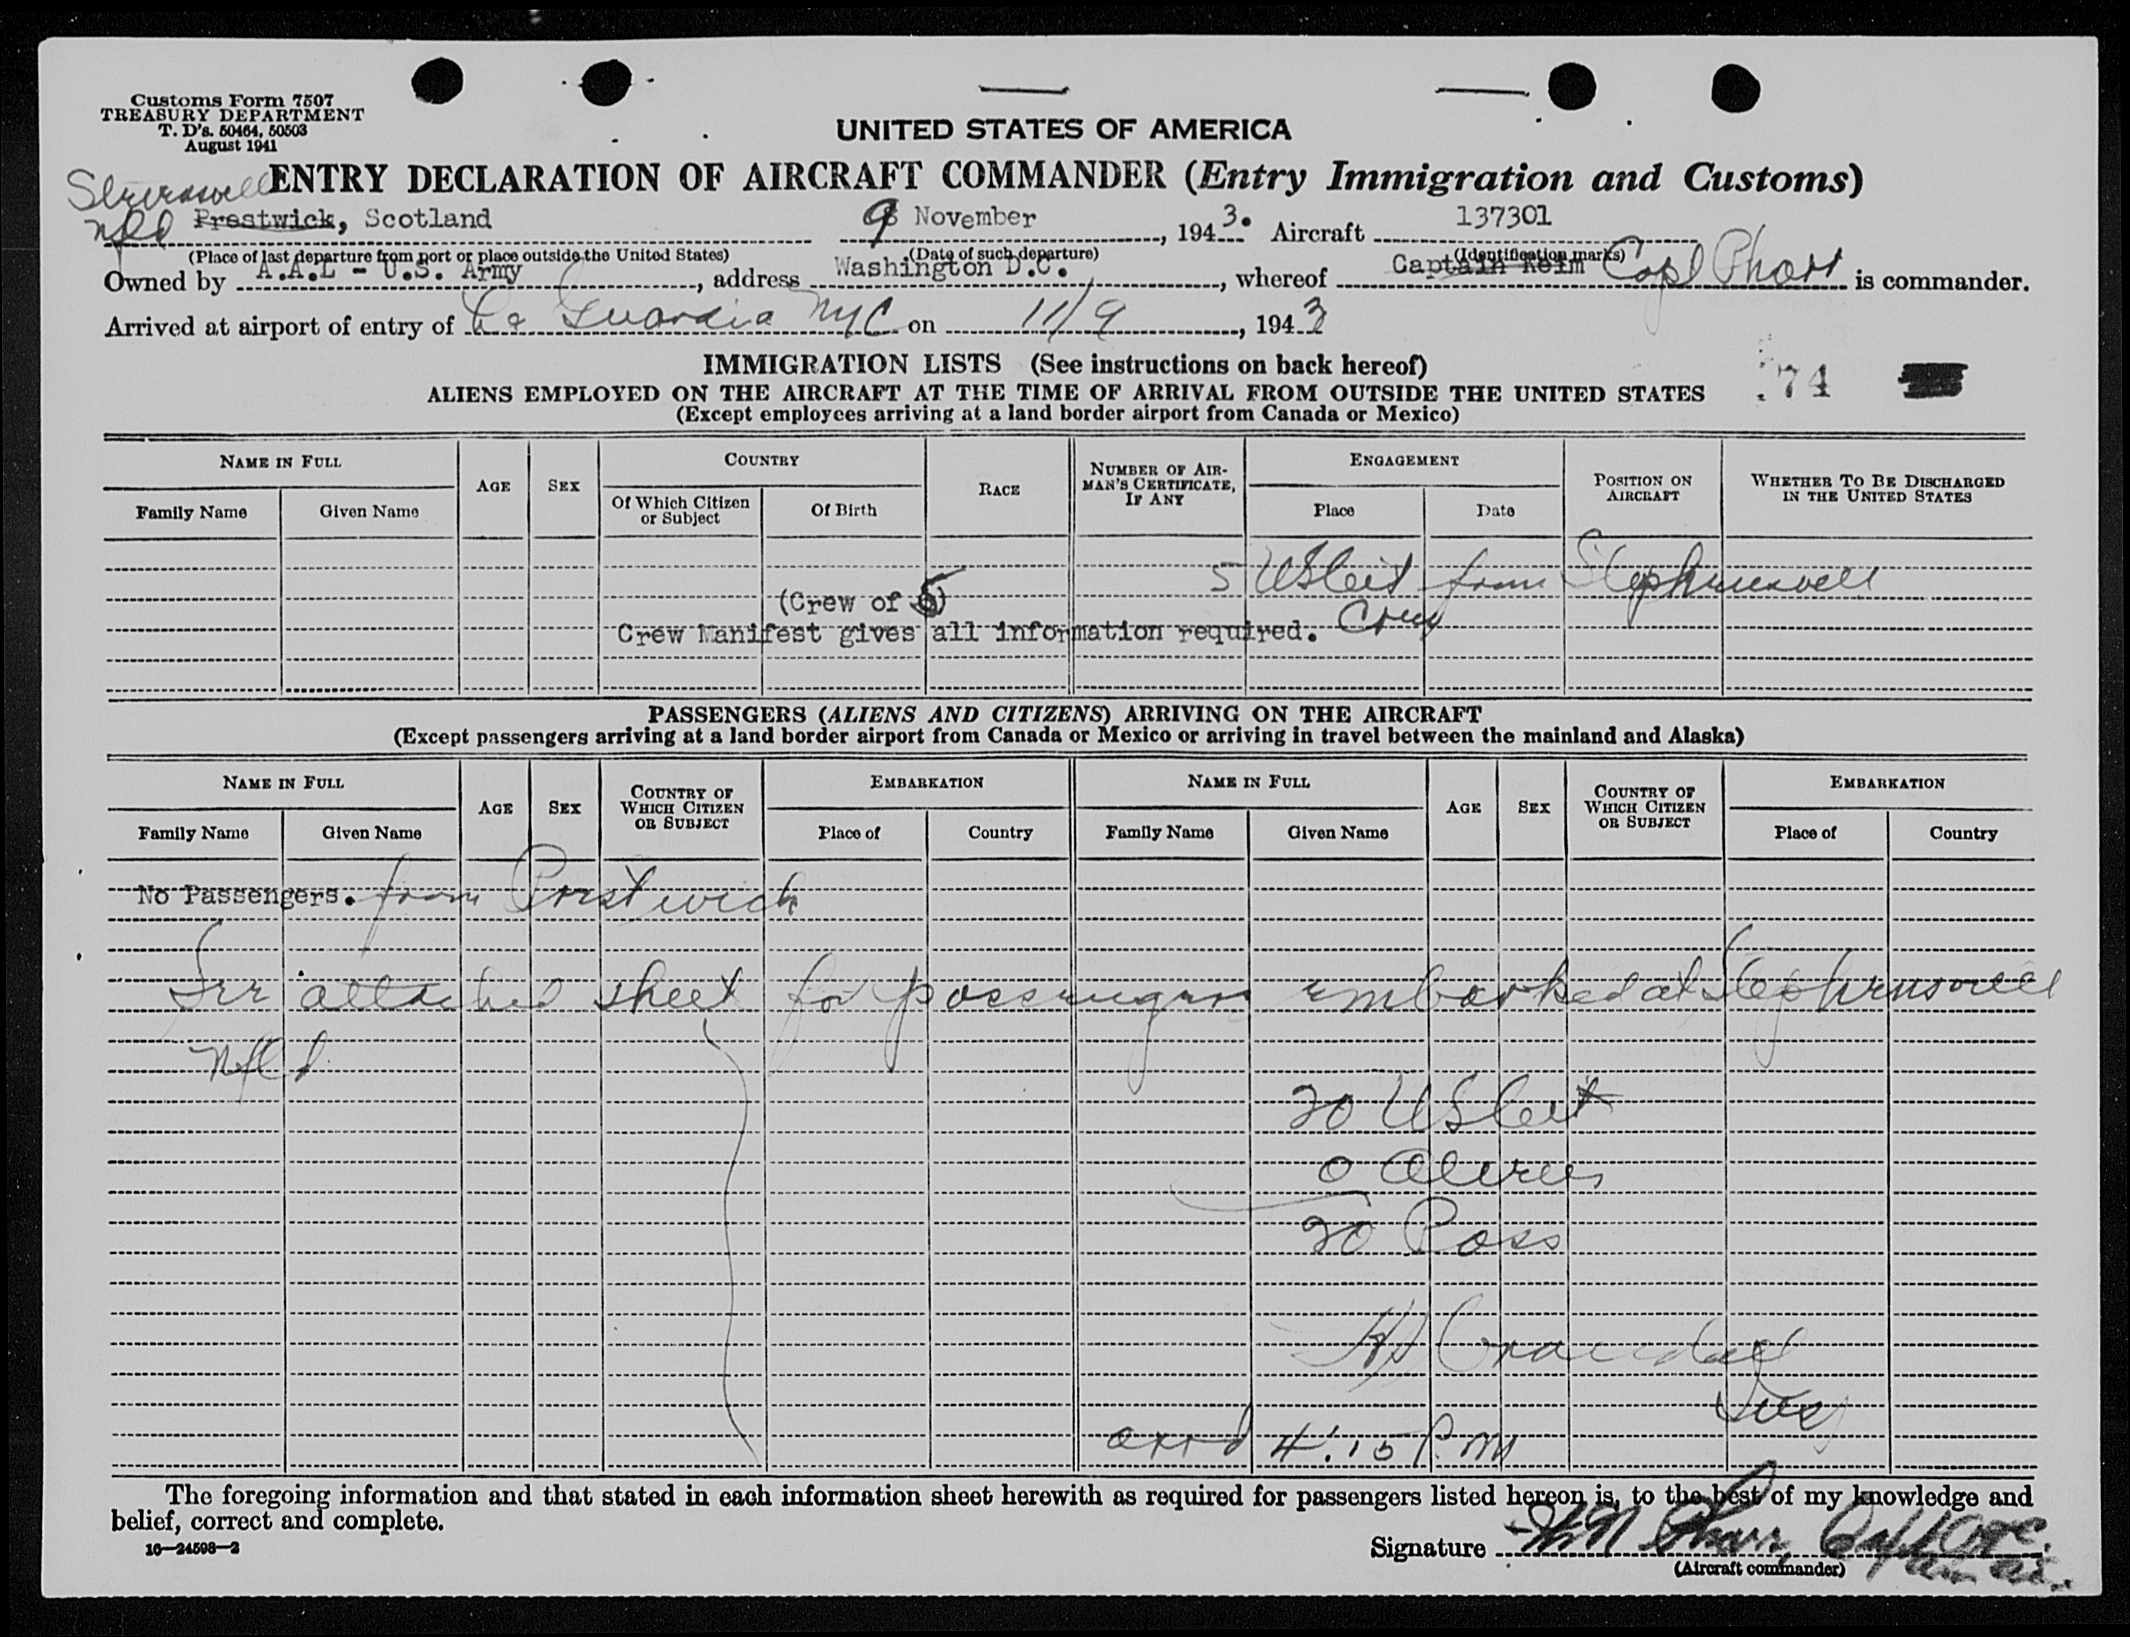 Customs Form 7507
TREASURY DEPARTMENT
T. D's. 50464, 50503
August 1941
UNITED STATES OF AMERICA
ENTRY DECLARATION OF AIRCRAFT COMMANDER (Entry Immigration and Customs)
Nfld Prestwick, Scotland 9 November, 1943. Aircraft 137301
(Place of last departure from port or place outside the United States) (Date of such departure) (Identification marks)
Owned by A.A.L - U.S. Army, address Washington D.C., whereof Captain Reim Capt Pharr is commander.
Arrived at airport of entry of La Guardia NYC on 11/9, 1943
IMMIGRATION LISTS (See instructions on back hereof)
74
ALIENS EMPLOYED ON THE AIRCRAFT AT THE TIME OF ARRIVAL FROM OUTSIDE THE UNITED STATES
(Except employees arriving at a land border airport from Canada or Mexico)
NAME IN FULL AGE SEX COUNTRY RACE NUMBER OF AIRMAN'S CERTIFICATE, IF ANY ENGAGEMENT POSITION ON AIRCRAFT WHETHER TO BE DISCHARGED IN THE UNITED STATES
Family Name Given Name Of Which Citizen or Subject Of Birth Place Date
5 US Cit from Stephenville
(Crew of 5)
Crew Manifest gives all information required. Crew
PASSENGERS (ALIENS AND CITIZENS) ARRIVING ON THE AIRCRAFT
(Except passengers arriving at a land border airport from Canada or Mexico or arriving in travel between the mainland and Alaska)
NAME IN FULL AGE SEX COUNTRY OF WHICH CITIZEN OR SUBJECT EMBARKATION NAME IN FULL AGE SEX COUNTRY OF WHICH CITIZEN OR SUBJECT EMBARKATION
Family Name Given Name Place of Country Family Name Given Name Place of Country
No Passengers. from Prestwick
See attached sheet for passengers embarked at Stephensville
Nfld
20 US Cit
0 Aliens
20 Pass
Insp
arrd 4:15 P.M
The foregoing information and that stated in each information sheet herewith as required for passengers listed hereon is, to the best of my knowledge and
belief, correct and complete.
16—24598-2
Signature Pharr, Capt
(Aircraft commander)